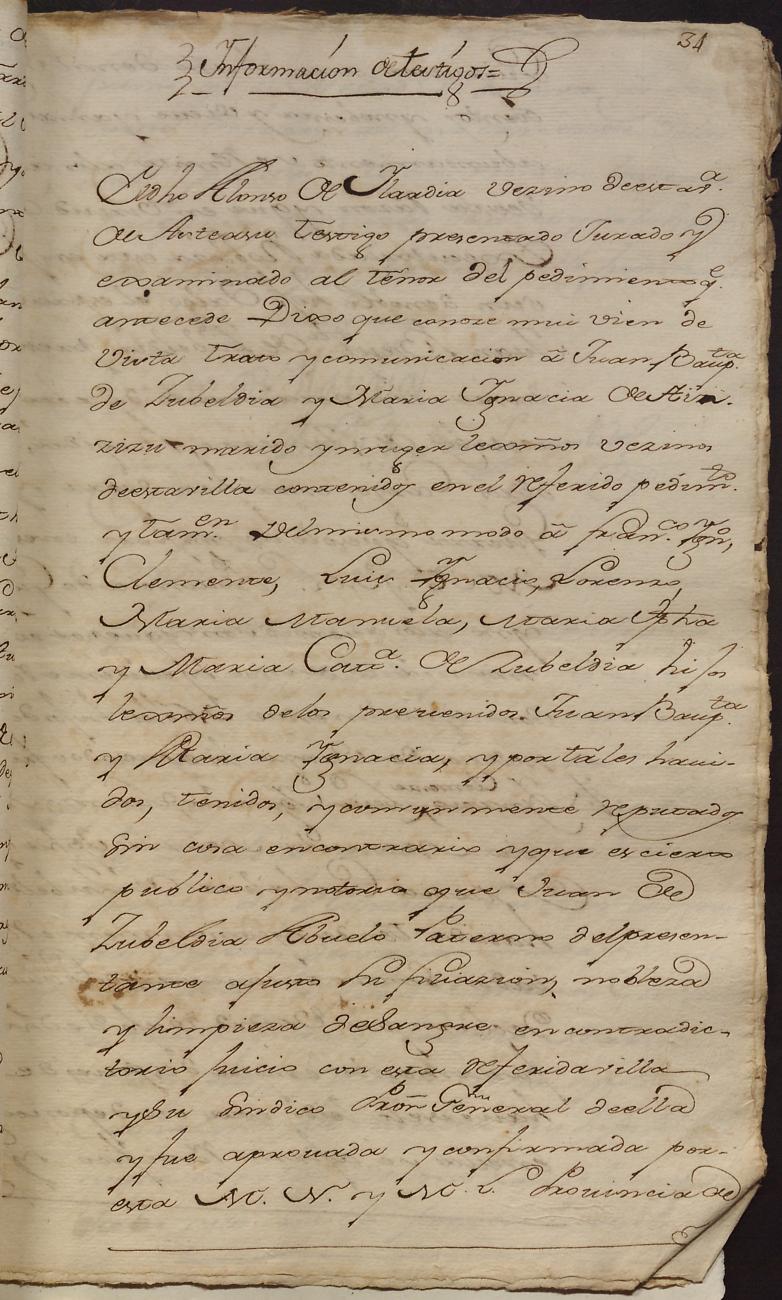 34
Informacion de testigos =
El dho Alonso de Ilardia vezino de esta vᵃ.
de Asteasu testigo presentado Jurado y
examinado al tenor del pedimiento q.ᵉ
antecede Dixo que conoze mui vien de
vista trato y comunicacion â Juan Baup.ᵗᵃ
de Zubeldia y Maria Ignacia de
rizu marido y muger lexmos vezinos
de esta villa contenidos en el referido pedim.ᵗᵒ
y tam.ᵉⁿ del mismo modo â fran.ᶜᵒ Ign.ᵒ,
Clemente, Luis Ignacio, Lorenzo,
Maria Manuela, Maria Jpha
y Maria Catt.ᵃ de Zubeldia hijos
lexmos de los prevenidos Juan Baup.ᵗᵃ
y Maria Ignacia, y por tales havi-
dos, tenidos, y comunmente reputados
sin cosa en contrario y que es cierto
publico y notorio que Juan de
Zubeldia Abuelo Paterno del presen-
tante afusto su filiazion, nobleza
y limpieza de Sangre en contradic-
torio Juicio con esta referida villa
y su Sindico Pror̃ General de ella
y fue aprovada y confirmada por-
esta M. N. y M. L. Provincia de